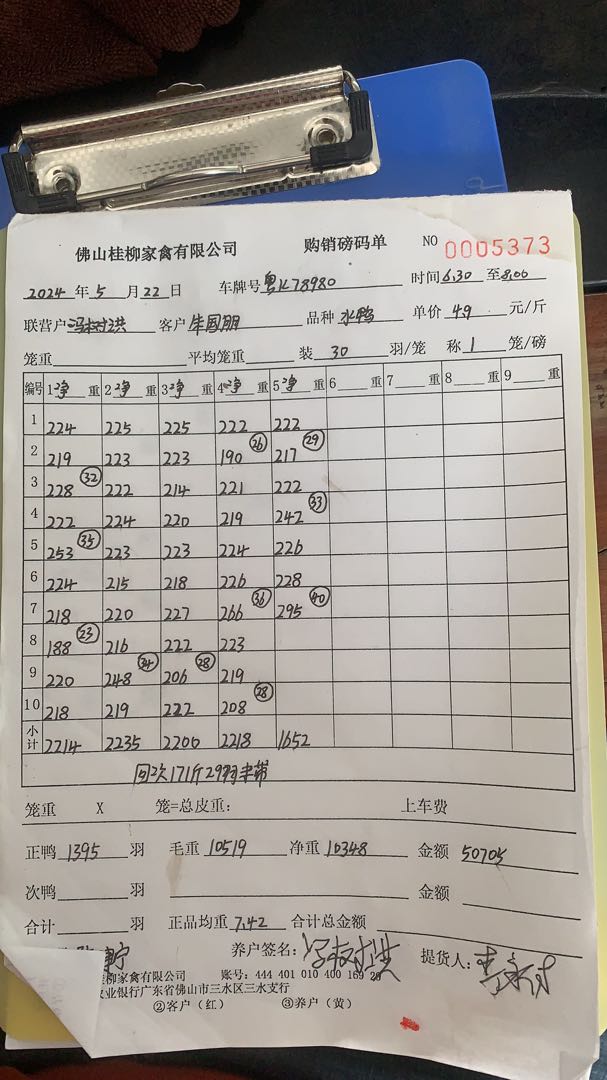 佛山桂柳家禽有限公司 购销磅码单 NO 0005373
2024 年 5 月 22 日 车牌号 粤K78980 时间 6.30 至 8.00
联营户 冯树洪 客户 朱国朋 品种 水鸭 单价 4.9 元/斤
笼重 平均笼重 装 30 羽/笼 称 1 笼/磅
编号 1 净 重 2 净 重 3 净 重 4 净 重 5 净 重 6 重 7 重 8 重 9 重
1 224 225 225 222 222
2 219 223 223 190 26 217 29
3 228 32 222 214 221 222
4 222 224 220 219 242 33
5 253 35 223 223 224 226
6 224 215 218 226 228
7 218 220 227 266 36 295 40
8 188 23 216 222 223
9 220 248 34 206 28 219
10 218 219 222 208 28
小计 2214 2235 2200 2218 1652
回次171斤29羽未带
笼重 X 笼=总皮重: 上车费
正鸭 1395 羽 毛重 10519 净重 10348 金额 50705
次鸭 羽 金额
合计 羽 正品均重 7.42 合计总金额
养户签名: 冯树洪 提货人:
桂柳家禽有限公司 账号: 444 401 010 400 169 20
农业银行广东省佛山市三水区三水支行
②客户(红) ③养户(黄)